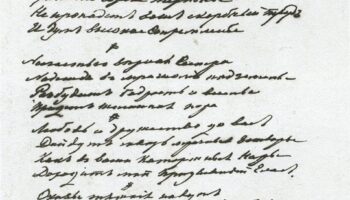 Не пропадетъ вашъ скорбный трудъ
И думъ высокое стремленье
Несчастью вѣрная Сестра
Надежда въ мрачномъ подземельѣ
Разбудитъ бодрость и веселье
Придетъ желанная пора
Любовь и дружество до васъ
Дойдутъ сквозь мрачные затворы
Какъ въ ваши каторжныя норы
Доходитъ мой
Оковы тяжкія падутъ